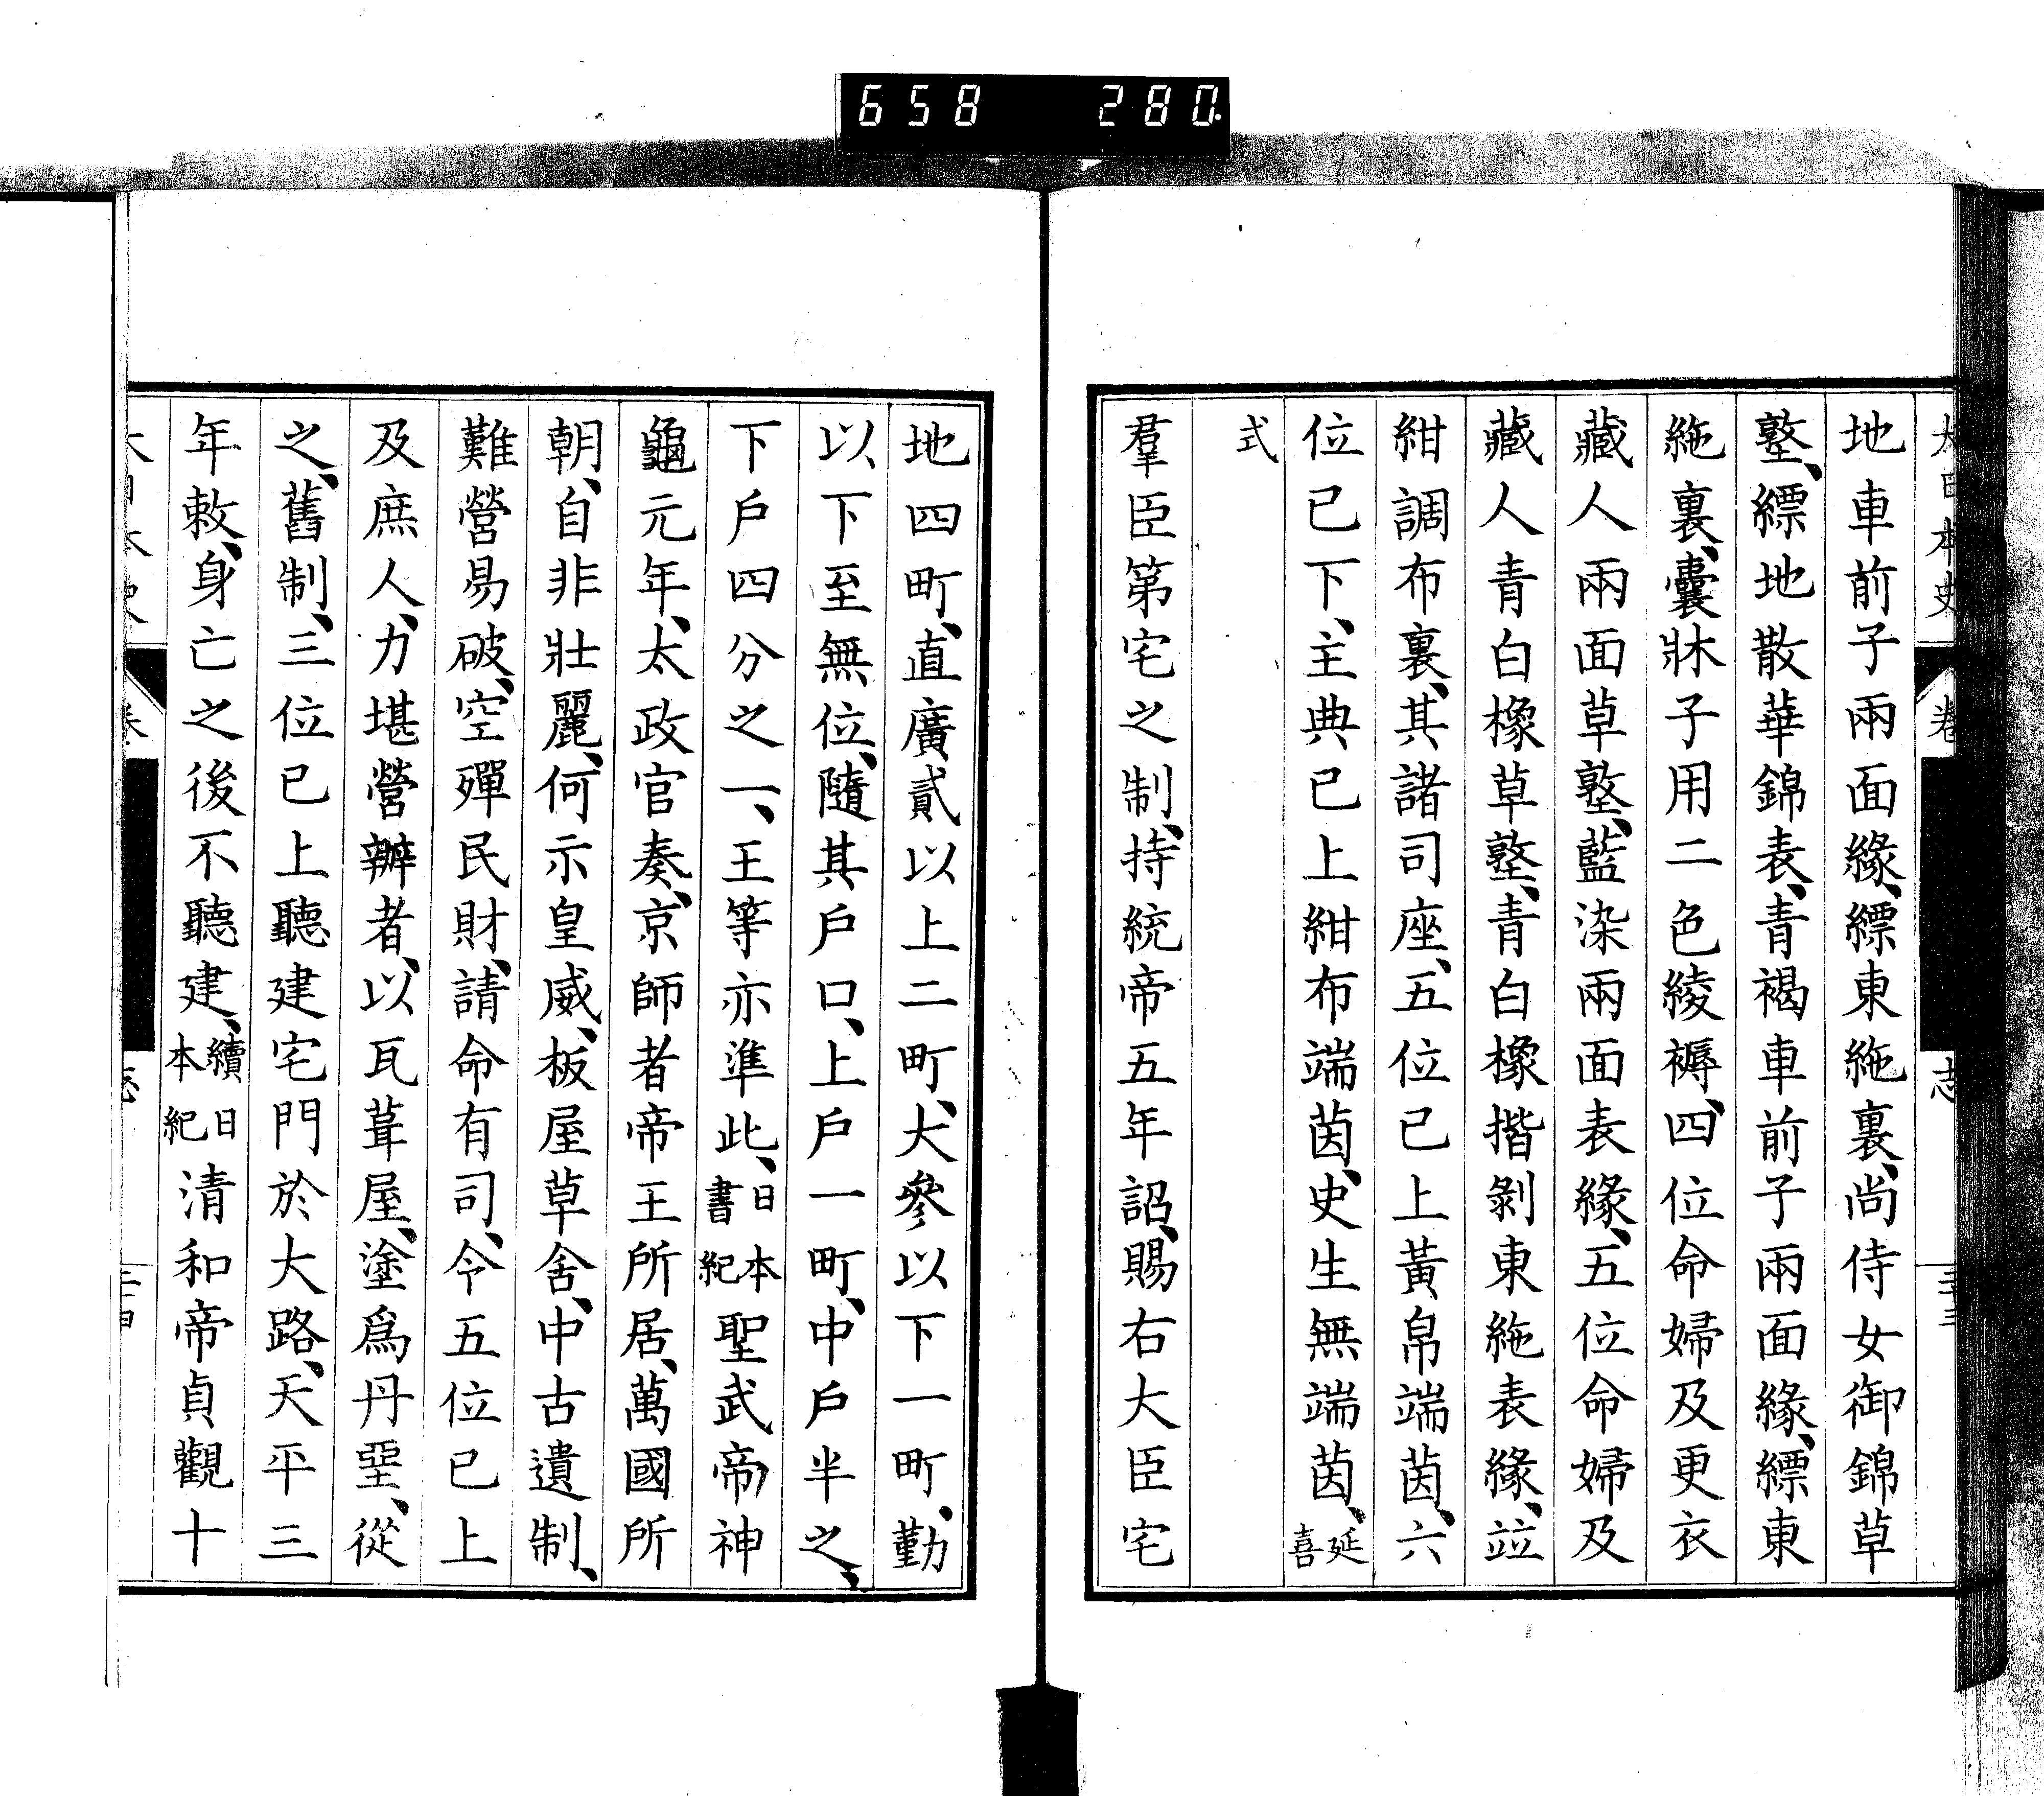 658 280
大日本史 卷 志
地車前子兩面緣、縹東絁裏、尚侍女御錦草
墪、縹地散華錦表、靑褐車前子兩面緣、縹東
絁裏、囊牀子用二色綾褥、四位命婦及更衣
藏人兩面草墪、藍染兩面表緣、五位命婦及
藏人靑白橡草墪、靑白橡揩剝東絁表緣、竝
紺調布裏、其諸司座、五位已上黃帛端茵、六
位已下、主典已上紺布端茵、史生無端茵、延喜
式
羣臣第宅之制、持統帝五年詔、賜右大臣宅
地四町、直廣貳以上二町、大參以下一町、勤
以下至無位、隨其戶口、上戶一町、中戶半之、
下戶四分之一、王等亦準此、日本書紀聖武帝神
龜元年、太政官奏、京師者帝王所居、萬國所
朝、自非壯麗、何示皇威、板屋草舍、中古遺制、
難營易破、空殫民財、請命有司、令五位已上
及庶人、力堪營辦者、以瓦葺屋、塗爲丹堊、從
之、舊制、三位已上聽建宅門於大路、天平三
年敕、身亡之後不聽建、續日本紀淸和帝貞觀十
大日本史 卷 志